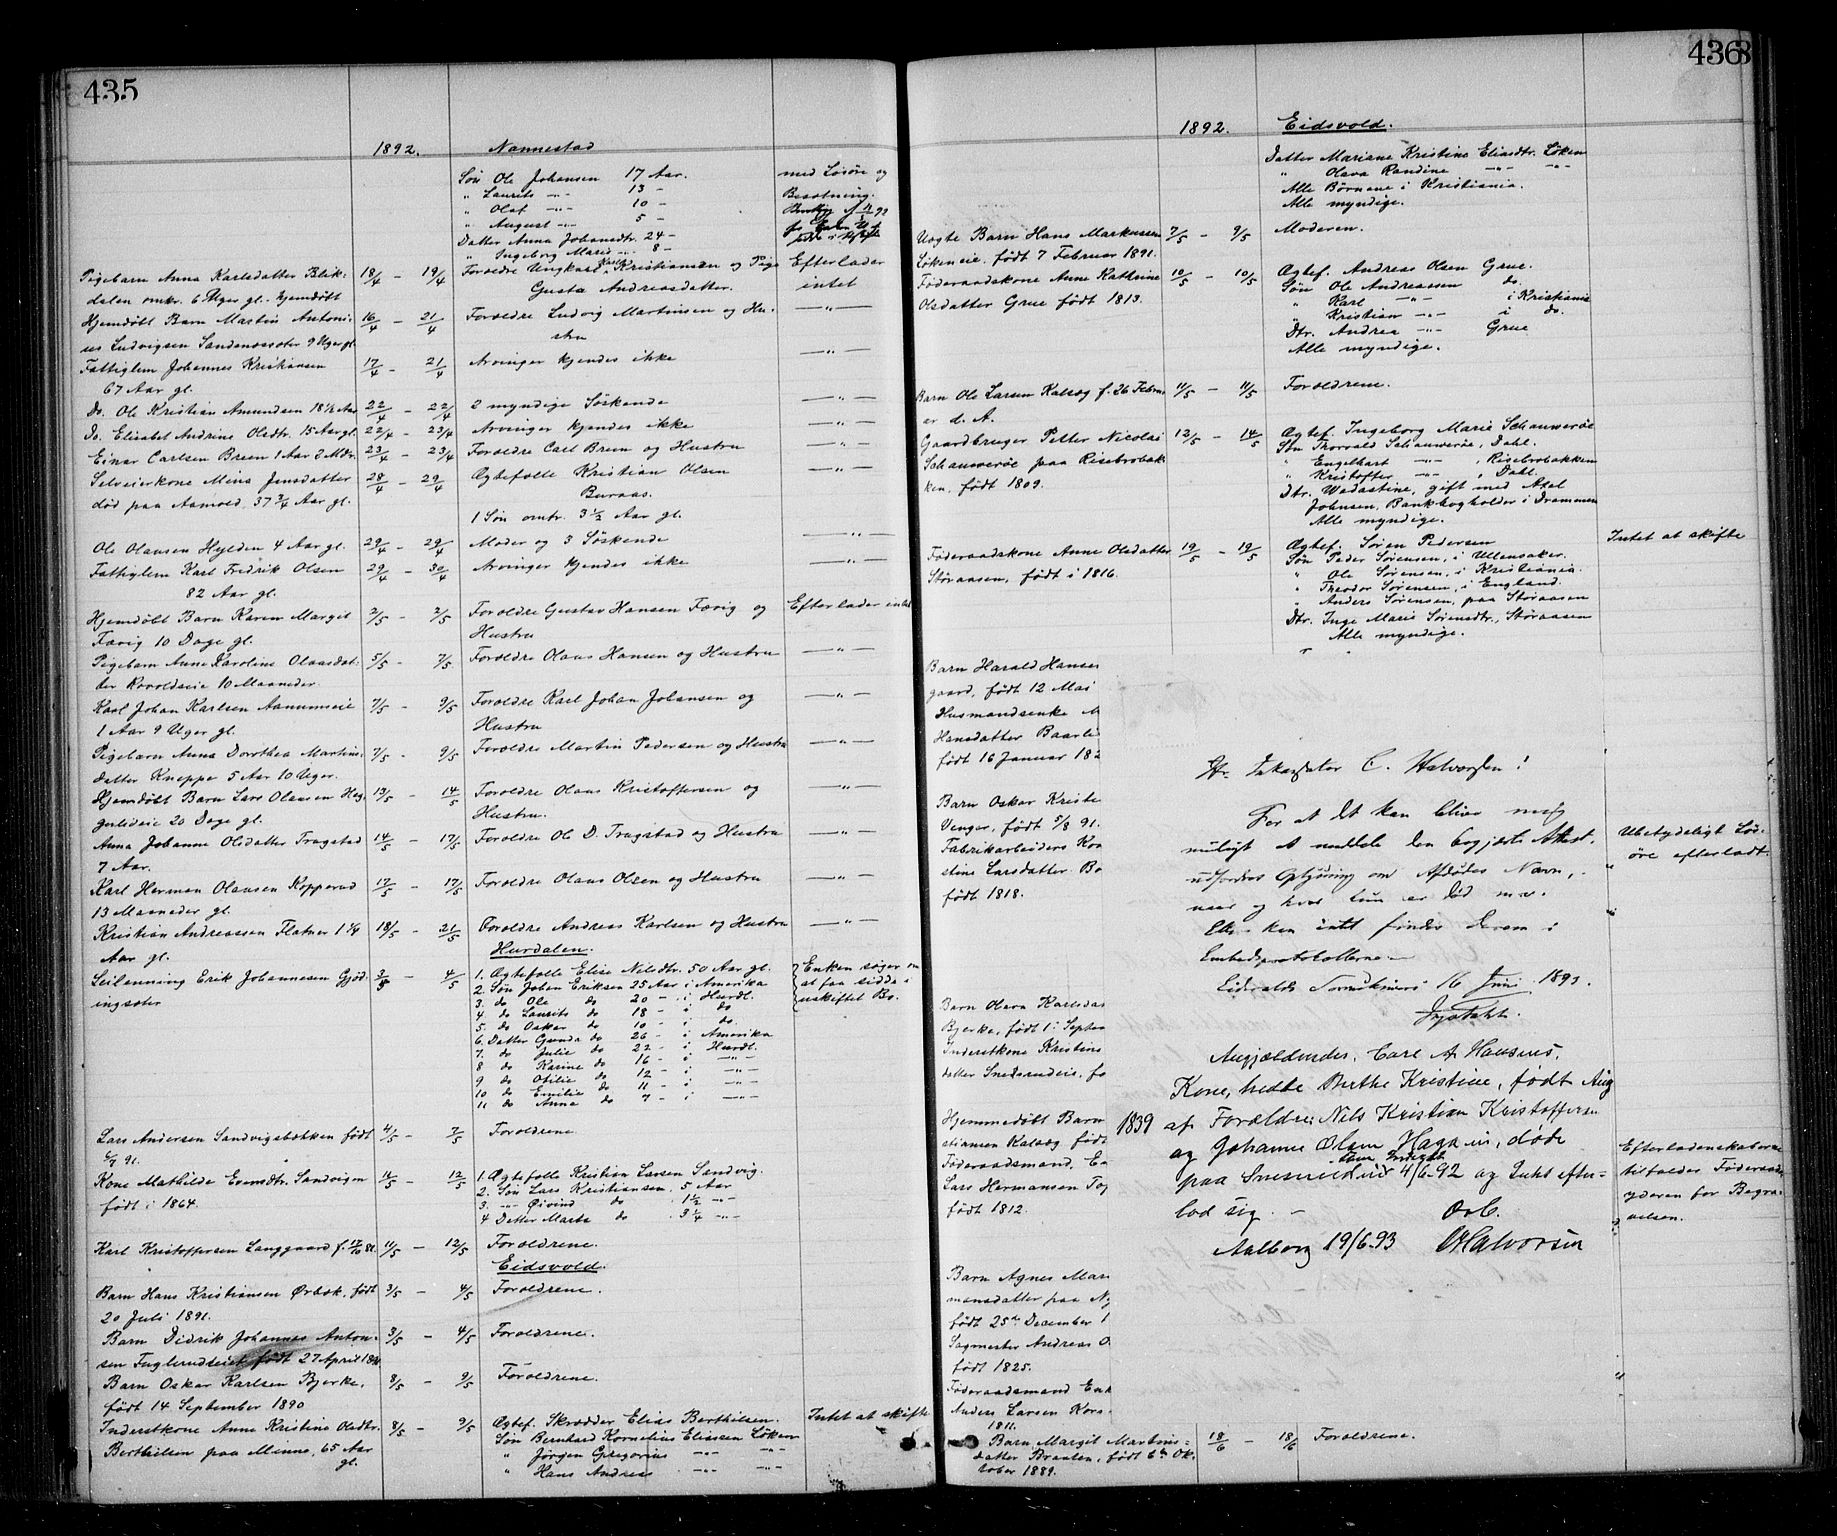 435
1892. Nannestad
Søn Ole Johansen 17 Aar. med Løsøre og
" Laurits -"- 13 - Besætning.
" Olaf -"- 10 -
" August -"- 5 -
Datter Anna Johansdtr. 24 -
" Ingeborg Marie -"- 8 -
Pigebarn Anna Karlsdatter Blik- 18/4 - 19/4 Forældre Ungkarl Karl Kristiansen og Pige Efterlader
dalen omtr. 6 Uger gl. hjemdøbt Gusta Andreasdatter. intet
Hjemdøbt Barn Martin Antoni- 16/4 - 21/4 Forældre Ludvig Martinsen og Hu- -"-
us Ludvigsen Sandenessæter 9 Uger gl. stru
Fattiglem Johannes Kristiansen 17/4 - 21/4 Arvinger kjendes ikke -"-
67 Aar gl.
Do. Ole Kristian Amundsen 18 1/2 Aar 22/4 - 22/4 2 myndige Søskende -"-
Do. Elisabet Andrine Olsdtr. 15 Aar gl. 22/4 - 23/4 Arvinger kjendes ikke -"-
Einar Carlsen Breen 1 Aar 2 Mdr. 23/4 - 23/4 Forældre Carl Breen og Hustru -"-
Selveierkone Mina Jensdatter 28/4 - 29/4 Ægtefælle Kristian Olsen -"-
død paa Aamold, 37 3/4 Aar gl. Buraas.
1 Søn omtr. 3 1/2 Aar gl.
Ole Olausen Hylden 4 Aar gl. 29/4 - 29/4 Moder og 3 Søskende -"-
Fattiglem Karl Fredrik Olsen 29/4 - 30/4 Arvinger kjendes ikke -"-
82 Aar gl.
Hjemdøbt Barn Karen Margit 2/5 - 2/5 Forældre Gustav Hansen Færig og Efterlader intet
Færig 10 Dage gl. Hustru
Pigebarn Anne Karoline Olausdat- 5/5 - 7/5 Forældre Olaus Hansen og Hustru -"-
ter Ravoldseie 10 Maaneder.
Karl Johan Karlsen Aanumseie 7/5 - 9/5 Forældre Karl Johan Johansen og -"-
1 Aar 9 Uger gl. Hustru
Pigebarn Anna Dorthea Martins- 7/5 - 9/5 Forældre Martin Pedersen og Hustru -"-
datter Kneppe 5 Aar 10 Uger.
Hjemdøbt Barn Lars Olausen Hæg- 13/5 - 14/5 Forældre Olaus Kristoffersen og -"-
gerlieeie 20 Dage gl. Hustru.
Anna Johanne Olsdatter Trugstad 14/5 - 17/5 Forældre Ole D. Trugstad og Hustru -"-
7 Aar.
Karl Herman Olausen Kopperud 17/5 - 17/5 Forældre Olaus Olsen og Hustru -"-
13 Maaneder gl.
Kristian Andreassen Flatner 1 1/4 18/5 - 21/5 Forældre Andreas Karlsen og Hustru -"-
Aar gl. Hurdalen.
Leilænding Erik Johannesen Gjød- 3/5 - 4/5 1. Ægtefælle Elise Nilsdtr. 50 Aar gl. Enken søger om
ingsæter 2. Søn Johan Eriksen 25 Aar i Amerika at faa sidde i
3. do Ole do 20 - i Hurdl. uskiftet Bo.
4. do Laurits do 18 - i do
5. do Oskar do 10 - i do.
6. Datter Gunda do 26 - i Amerika
7. do Julie do 22 - i Hurdl.
8 do Karine do 16 - i -"-
9 do Otilie do 12 - i -"-
10 do Emilie do 11 - i -"-
11 do Anna do 7 - i -"-
Lars Andersen Sandvigsbækken født 4/5 - 7/5 Forældrene
6/9 91.
Kone Mathilde Evensdtr. Sandvigen 11/5 - 12/5 1. Ægtefælle Kristian Larsen Sandvig.
født i 1864. 2. Søn Lars Kristiansen, 5 Aar
3. -"- Øivind do 1 1/2 -"-
4 Datter Marta do 3 1/4 -"-
Karl Kristoffersen Langgaard f. 17/10 81. 11/5 - 12/5 Forældrene.
Eidsvold.
Barn Hans Kristiansen Ørbæk, født 3/5 - 4/5 Forældrene.
20 Juli 1891.
Barn Didrik Johannes Anton- 3/5 - 4/5 Forældrene.
sen Fuglerudseiet født 27 April
Barn Oskar Karlsen Bjerke, 8/5 - 9/5 Forældrene.
født 14 September 1890
Inderstkone Anne Kristine Olsdtr. 8/5 - 9/5 Ægtef. Skrædder Elias Berthilsen. Intet at skifte
Berthilsen paa Menne, 65 Aar Søn Bernhard Kornelius Eliassen Løken
gl. " Jørgen Gregorius -"- -"-
" Hans Andreas -"- -"-
436
1892. Eidsvold.
Datter Mariane Kristine Eliasdtr. Løken
" Olava Randine -"- -"-
Alle Børnene i Kristiania.
Alle myndige.
Uægte Barn Hans Markussen 7/5 - 9/5 Moderen.
Løkeneie. født 7 Februar 1891.
Føderaadskone Anne Kathrine 10/5 - 10/5 Ægtef. Andreas Olsen Grue.
Olsdatter Grue født 1813. Søn Ole Andreassen do.
" Karl -"- i Kristiania
" Kristian -"- i do.
Dtr. Andrea -"- Grue
Alle myndige.
Barn Ole Larsen Kalsæg f. 26 Febru- 11/5 - 11/5 Forældrene.
ar d. A.
Gaardbruger Petter Nicolai 12/5 - 14/5 Ægtef. Ingeborg Marie Schauwerøe
Schauwerøe paa Risebrobak Søn Thorvald Schauwerøe, Dahl.
ken, født 1809. " Engelhart -"- , Risebrobakken
" Kristoffer -"- , Dahl.
Dtr. Wadastine, gift med Axel
Johnsen, Bankbogholder i Drammen
Alle myndige.
Føderaadskone Anne Olsdatter 19/5 - 19/5 Ægtef. Søren Pedersen Intet at skifte
Støraasen, født i 1816. Søn Peder Sørensen, i Ullensaker.
" Ole Sørensen, i Kristiania.
" Theodor Sørensen, i England.
" Anders Sørensen, paa Støraasen
Dtr. Inge Marie Sørensdtr., Støraasen
Alle myndige.
Barn Harald Hanse
gaard, født 12 Mai
Husmandsenke M
Hansdatter Baarli
født 16 Januar 182
Barn Oskar Kriste
Venger, født 5/8 91.
Fabrikarbeiders Ko
stine Larsdatter Bo
født 1818.
Ubetydeligt Løs-
øre efterladt.
Barn Olava Karlsda
Bjerke, født 1. Septem
Inderstkone Kristine
datter Snedsrudeie, fo
Hjemmedøbt Barn
stiansen Kalsæg født
Føderaadsmand, En
Lars Hermansen To
født 1812.
Efterladenskaberne
tilfaldes Føderaads-
yderen for Begra-
velsen.
Barn Agnes Mar
mansdatter paa N
født 25de December 1
Sagmester Andreas O
født 1825.
Føderaadsmand Enk
Anders Larsen Kors
1811.
Barn Margit Martins- 18/6 - 18/6 Forældrene.
datter Braaten, født 6te Ok-
tober 1889.
Hr. C. Halvorsen!
For at det kan blive mig
muligt at meddele den begjærte Attest,
udfordres Oplysning om Afdødes Navn,
naar og hvor hun er død m.v.
kan intet findes derom i
Embedsprotokollerne.
Eidsvolds 16 Juni 1893.
Angjældendes, Carl A. Hansens,
Kone, hedte Berthe Kristine, født Aug
1839 af Forældre: Nils Kristian Kristoffersen
og Johanne Olsen Hagaen, døde
paa 4/6-92 og intet efter-
lod sig. - Ærb.
Aalborg 19/6-93 CHalvorsen